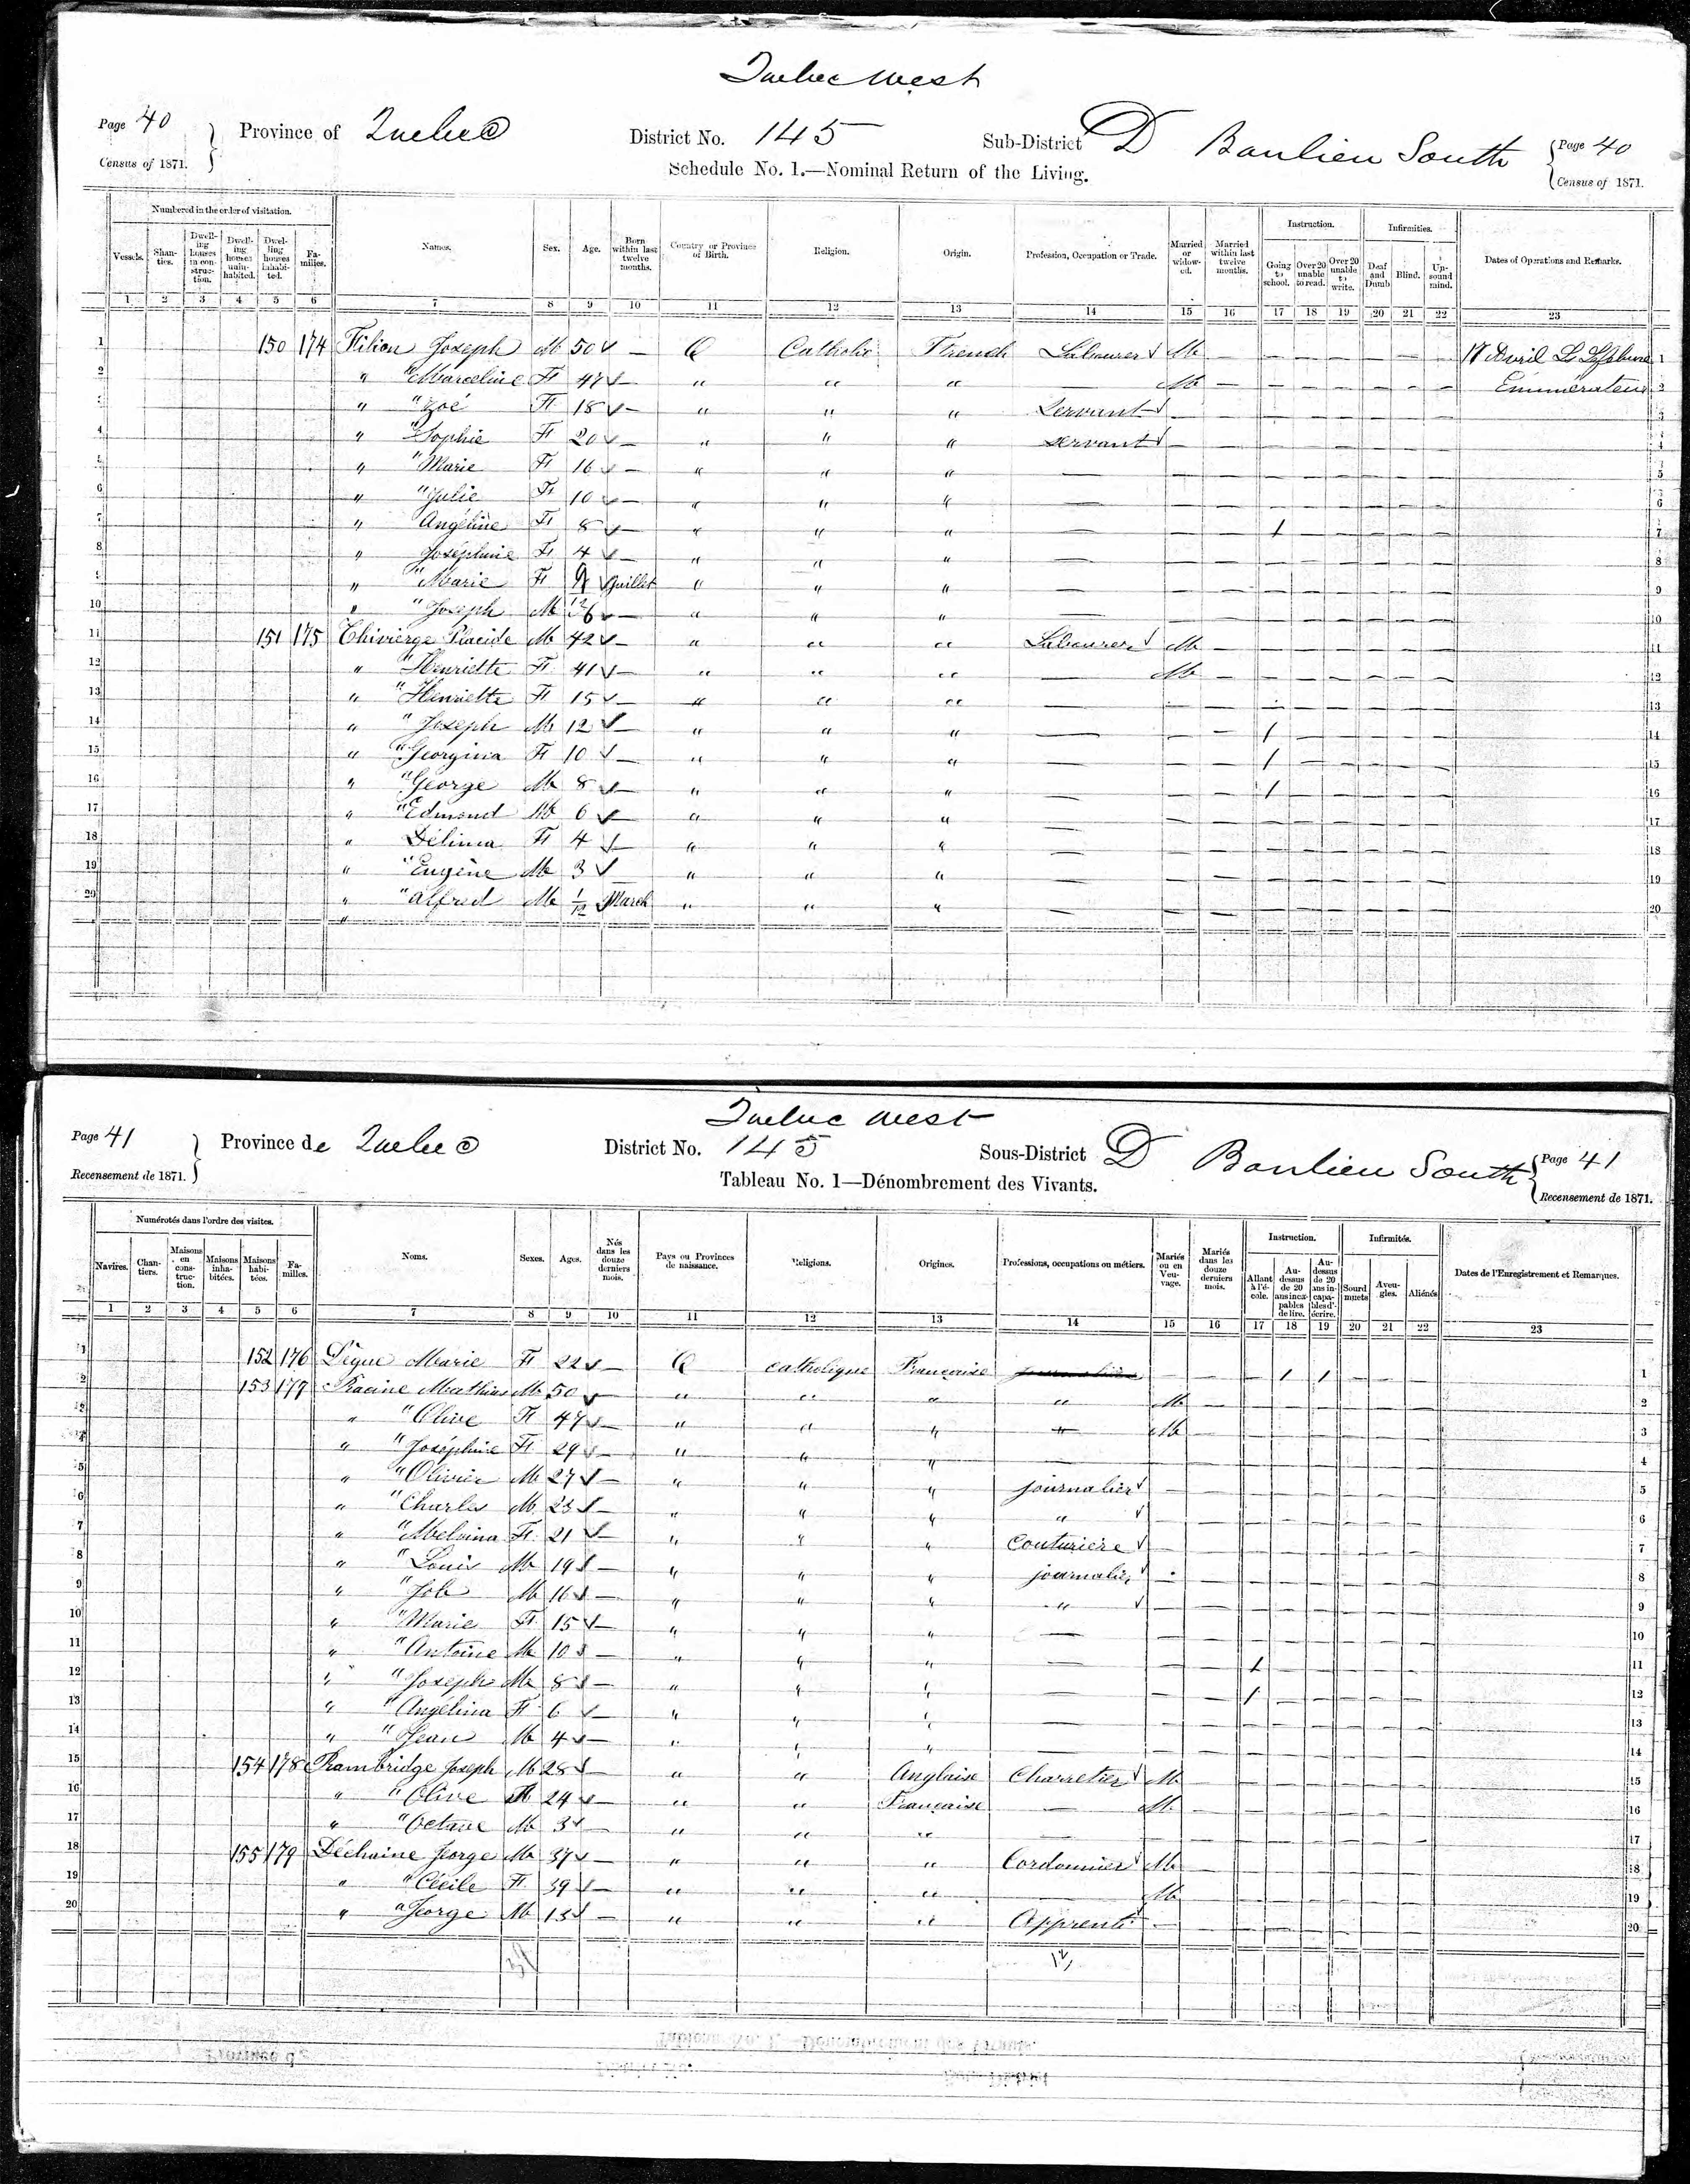 Quebec West
Page 40 Province of Quebec District No. 145 Sub-District D Banlieu South Page 40
Census of 1871. Schedule No. 1.—Nominal Return of the Living. Census of 1871.
Numbered in the order of visitation. Instruction. Infirmities.
Vessels. Shanties. Dwelling houses in construction. Dwelling houses uninhabited. Dwelling houses inhabited. Families. Names. Sex. Age. Born within last twelve months. Country or Province of Birth. Religion. Origin. Profession, Occupation or Trade. Married or widowed. Married within last twelve months. Going to school. Over 20 unable to read. Over 20 unable to write. Deaf and Dumb Blind. Unsound mind. Dates of Operations and Remarks.
1 2 3 4 5 6 7 8 9 10 11 12 13 14 15 16 17 18 19 20 21 22 23
1 150 174 Filion Joseph M 50 — Q Catholic French Labourer M — — — — — — — 17 Avril L. Lefebvre 1
2 " " Marceline F 47 — " " " — M — — — — — — — Enumérateur 2
3 " " Zoé F 18 — " " " Servant — — — — — — — — 3
4 " " Sophie F 20 — " " " Servant — — — — — — — — 4
5 " " Marie F 16 — " " " — — — — — — — — — 5
6 " " Julie F 10 — " " " — — — — — — — — — 6
7 " Angéline F 8 — " " " — — — 1 — — — — — 7
8 " Joséphine F 4 — " " " — — — — — — — — — 8
9 " " Marie F Juillet " " " — — — — — — — — — 9
10 " " Joseph M — " " " — — — — — — — — — 10
11 151 175 Thivierge Placide M 42 — " " " Labourer M — — — — — — — 11
12 " " Henriette F 41 — " " " — M — — — — — — — 12
13 " " Henriette F 15 — " " " — — — — — — — — — 13
14 " " Joseph M 12 — " " " — — — 1 — — — — — 14
15 " " Georgina F 10 — " " " — — — 1 — — — — — 15
16 " " George M 8 — " " " — — — 1 — — — — — 16
17 " " Edmond M 6 — " " " — — — — — — — — — 17
18 " Délima F 4 — " " " — — — — — — — — — 18
19 " " Eugène M 3 " " " — — — — — — — — — 19
20 " " Alfred M 1/12 March " " " — — — — — — — — — 20
Quebec West
Page 41 Province de Quebec District No. 145 Sous-District D Banlieu South Page 41
Recensement de 1871. Tableau No. 1—Dénombrement des Vivants. Recensement de 1871.
Numérotés dans l'ordre des visites. Instruction. Infirmités.
Navires. Chantiers. Maisons en construction. Maisons inhabitées. Maisons habitées. Familles. Noms. Sexes. Ages. Nés dans les douze derniers mois. Pays ou Provinces de naissance. Religions. Origines. Professions, occupations ou métiers. Mariés ou en Veuvage. Mariés dans les douze derniers mois. Allant à l'école. Au-dessus de 20 ans incapables de lire. Au-dessus de 20 ans incapables d'écrire. Sourd muets Aveugles. Aliénés Dates de l'Enregistrement et Remarques.
1 2 3 4 5 6 7 8 9 10 11 12 13 14 15 16 17 18 19 20 21 22 23
1 152 176 Marie F 22 — Q catholique Francaise — — — 1 1 — — — 1
2 153 177 Racine Mathias M 50 " " " " M — — — — — — — 2
3 " " Olive F 47 — " " " " M — — — — — — — 3
4 " " Joséphine F 29 — " " " — — — — — — — — — 4
5 " " Olivier M 27 — " " " journalier — — — — — — — — 5
6 " " Charles M 23 — " " " " — — — — — — — — 6
7 " " Melvina F 21 — " " " Couturiere — — — — — — — — 7
8 " " Louis M 19 — " " " journalier — — — — — — — — 8
9 " " Job M 16 — " " " " — — — — — — — — 9
10 " " Marie F 15 — " " " — — — — — — — — — 10
11 " " Antoine M 10 — " " " — — — 1 — — — — — 11
12 " " Joseph M 8 — " " " — — — 1 — — — — — 12
13 " " Angélina F 6 — " " " — — — — — — — — — 13
14 " " Jean M 4 — " " " — — — — — — — — — 14
15 154 178 Rambridge Joseph M 28 — " " Anglaise Charretier M — — — — — — — 15
16 " " Olive F 24 — " " Francaise — M — — — — — — — 16
17 " " Octave M 3 — " " " — — — — — — — — — 17
18 155 179 Déchaine George M 37 — " " " Cordonnier M — — — — — — — 18
19 " " Cécile F 39 — " " " — M — — — — — — — 19
20 " " George M 13 — " " " Apprenti — — — — — — — — 20